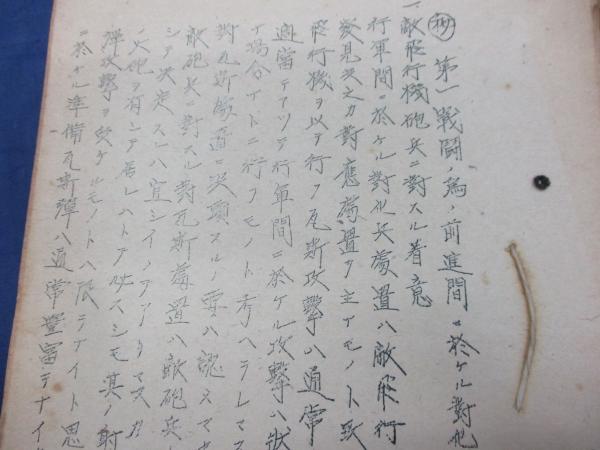 秘 第一 戰鬪ノ爲ノ前進間ニ於ケル對化
一敵飛行機砲兵ニ對スル着意
行軍間ニ於ケル對化兵處置ハ敵飛行
發見次之カ對應處置ヲ主ナモノト致
飛行機ヲ以テ行フ瓦斯攻撃ハ通常
適當デアツテ行軍間ニ於ケル攻撃ハ狀
ナ場合イトニ行フモノト考ヘラレマス
對瓦斯處置ニ沒頭スルノ要ハ認メマ
敵砲兵ニ對スル對瓦斯處置ハ敵砲兵
シテ決定スレハ宜シイノデアリマスカ
ノ火砲ヲ有シテ居レハトテ必スシモ其ノ射
彈攻撃ヲ受ケルモノトハ限ラナイト思
ニ於ケル準備瓦斯彈ハ通常豐富デナイ